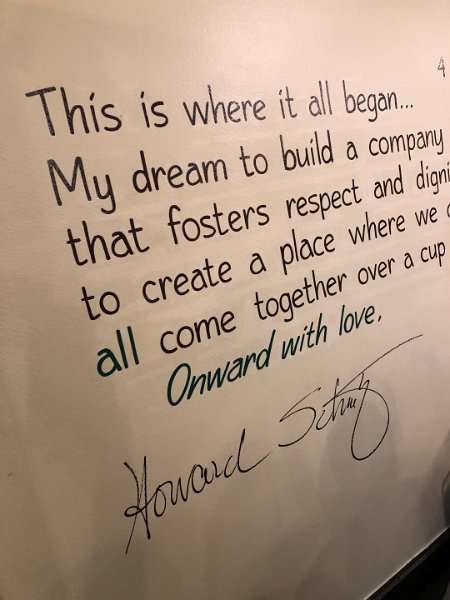 4
This is where it all began...
My dream to build a company
that fosters respect and digni
to create a place where we c
all come together over a cup
Onward with love,
Howard Schultz